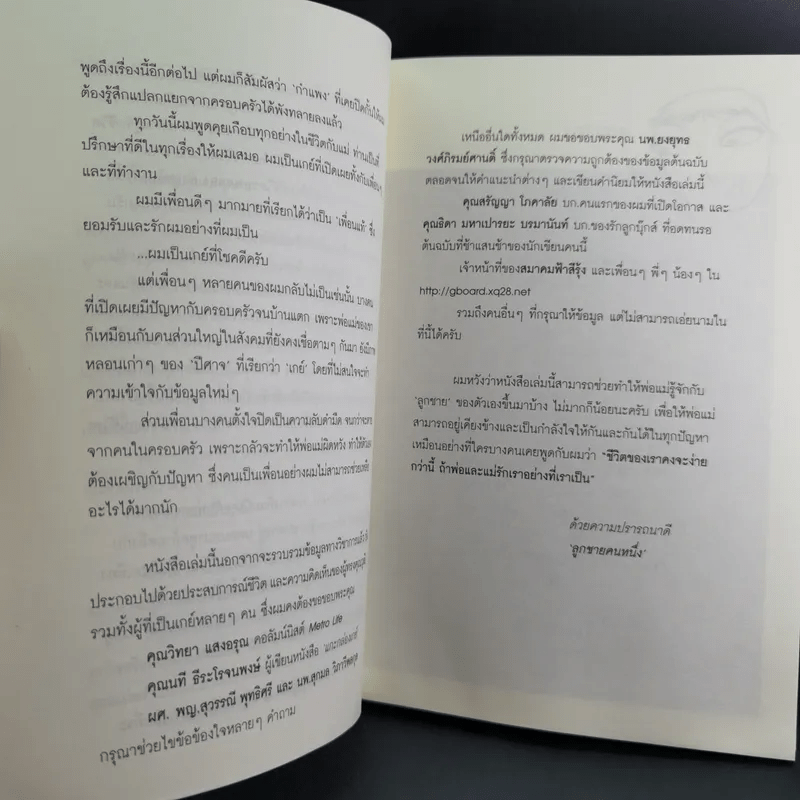 พูดถึงเรื่องนี้อีกต่อไป แต่ผมก็สัมผัสว่า ‘กำแพง’ ที่เคยปิดกั้นให้ผม
ต้องรู้สึกแปลกแยกจากครอบครัวได้พังทลายลงแล้ว
ทุกวันนี้ผมพูดคุยเกือบทุกอย่างในชีวิตกับแม่ ท่านเป็นที่
ปรึกษาที่ดีในทุกเรื่องให้ผมเสมอ ผมเป็นเกย์ที่เปิดเผยทั้งกับเพื่อนๆ
และที่ทำงาน
ผมมีเพื่อนดีๆ มากมายที่เรียกได้ว่าเป็น ‘เพื่อนแท้’ ซึ่ง
ยอมรับและรักผมอย่างที่ผมเป็น
...ผมเป็นเกย์ที่โชคดีครับ
แต่เพื่อนๆ หลายคนของผมกลับไม่เป็นเช่นนั้น บางคน
ที่เปิดเผยมีปัญหากับครอบครัวจนบ้านแตก เพราะพ่อแม่ของเขา
ก็เหมือนกับคนส่วนใหญ่ในสังคมที่ยังคงเชื่อตามๆ กันมา ยังมีภาพ
หลอนเก่าๆ ของ ‘ปีศาจ’ ที่เรียกว่า ‘เกย์’ โดยที่ไม่สนใจจะทำ
ความเข้าใจกับข้อมูลใหม่ๆ
ส่วนเพื่อนบางคนตั้งใจปิดเป็นความลับดำมืด จนกว่าจะตาย
จากคนในครอบครัว เพราะกลัวจะทำให้พ่อแม่ผิดหวัง ทำให้ตัวเอง
ต้องเผชิญกับปัญหา ซึ่งคนเป็นเพื่อนอย่างผมไม่สามารถช่วยเหลือ
อะไรได้มากนัก
หนังสือเล่มนี้นอกจากจะรวบรวมข้อมูลทางวิชาการแล้ว ยัง
ประกอบไปด้วยประสบการณ์ชีวิต และความคิดเห็นของผู้ทรงคุณวุฒิ
รวมทั้งผู้ที่เป็นเกย์หลายๆ คน ซึ่งผมคงต้องขอขอบพระคุณ
คุณวิทยา แสงอรุณ คอลัมน์นิสต์ Metro Life
คุณนที ธีระโรจนพงษ์ ผู้เขียนหนังสือ
ผศ. พญ.สุวรรณี พุทธิศรี และ นพ.สุกมล วิภาวีพลกุล
กรุณาช่วยไขข้อข้องใจหลายๆ คำถาม
เหนืออื่นใดทั้งหมด ผมขอขอบพระคุณ นพ.ยงยุทธ
วงศ์ภิรมย์ศานติ์ ซึ่งกรุณาตรวจความถูกต้องของข้อมูลต้นฉบับ
ตลอดจนให้คำแนะนำต่างๆ และเขียนคำนิยมให้หนังสือเล่มนี้
คุณสรัญญา โภคาลัย บก.คนแรกของผมที่เปิดโอกาส และ
คุณธิดา มหาเปารยะ บรมานันท์ บก.ของรักลูกบุ๊กส์ ที่อดทนรอ
ต้นฉบับที่ช้าแสนช้าของนักเขียนคนนี้
เจ้าหน้าที่ของสมาคมฟ้าสีรุ้ง และเพื่อนๆ พี่ๆ น้องๆ ใน
http://gboard.xq28.net
รวมถึงคนอื่นๆ ที่กรุณาให้ข้อมูล แต่ไม่สามารถเอ่ยนามใน
ที่นี้ได้ครับ
ผมหวังว่าหนังสือเล่มนี้สามารถช่วยทำให้พ่อแม่รู้จักกับ
‘ลูกชาย’ ของตัวเองขึ้นมาบ้าง ไม่มากก็น้อยนะครับ เพื่อให้พ่อแม่
สามารถอยู่เคียงข้างและเป็นกำลังใจให้กันและกันได้ในทุกปัญหา
เหมือนอย่างที่ใครบางคนเคยพูดกับผมว่า “ชีวิตของเราคงจะง่าย
กว่านี้ ถ้าพ่อและแม่รักเราอย่างที่เราเป็น”
ด้วยความปรารถนาดี
‘ลูกชายคนหนึ่ง’